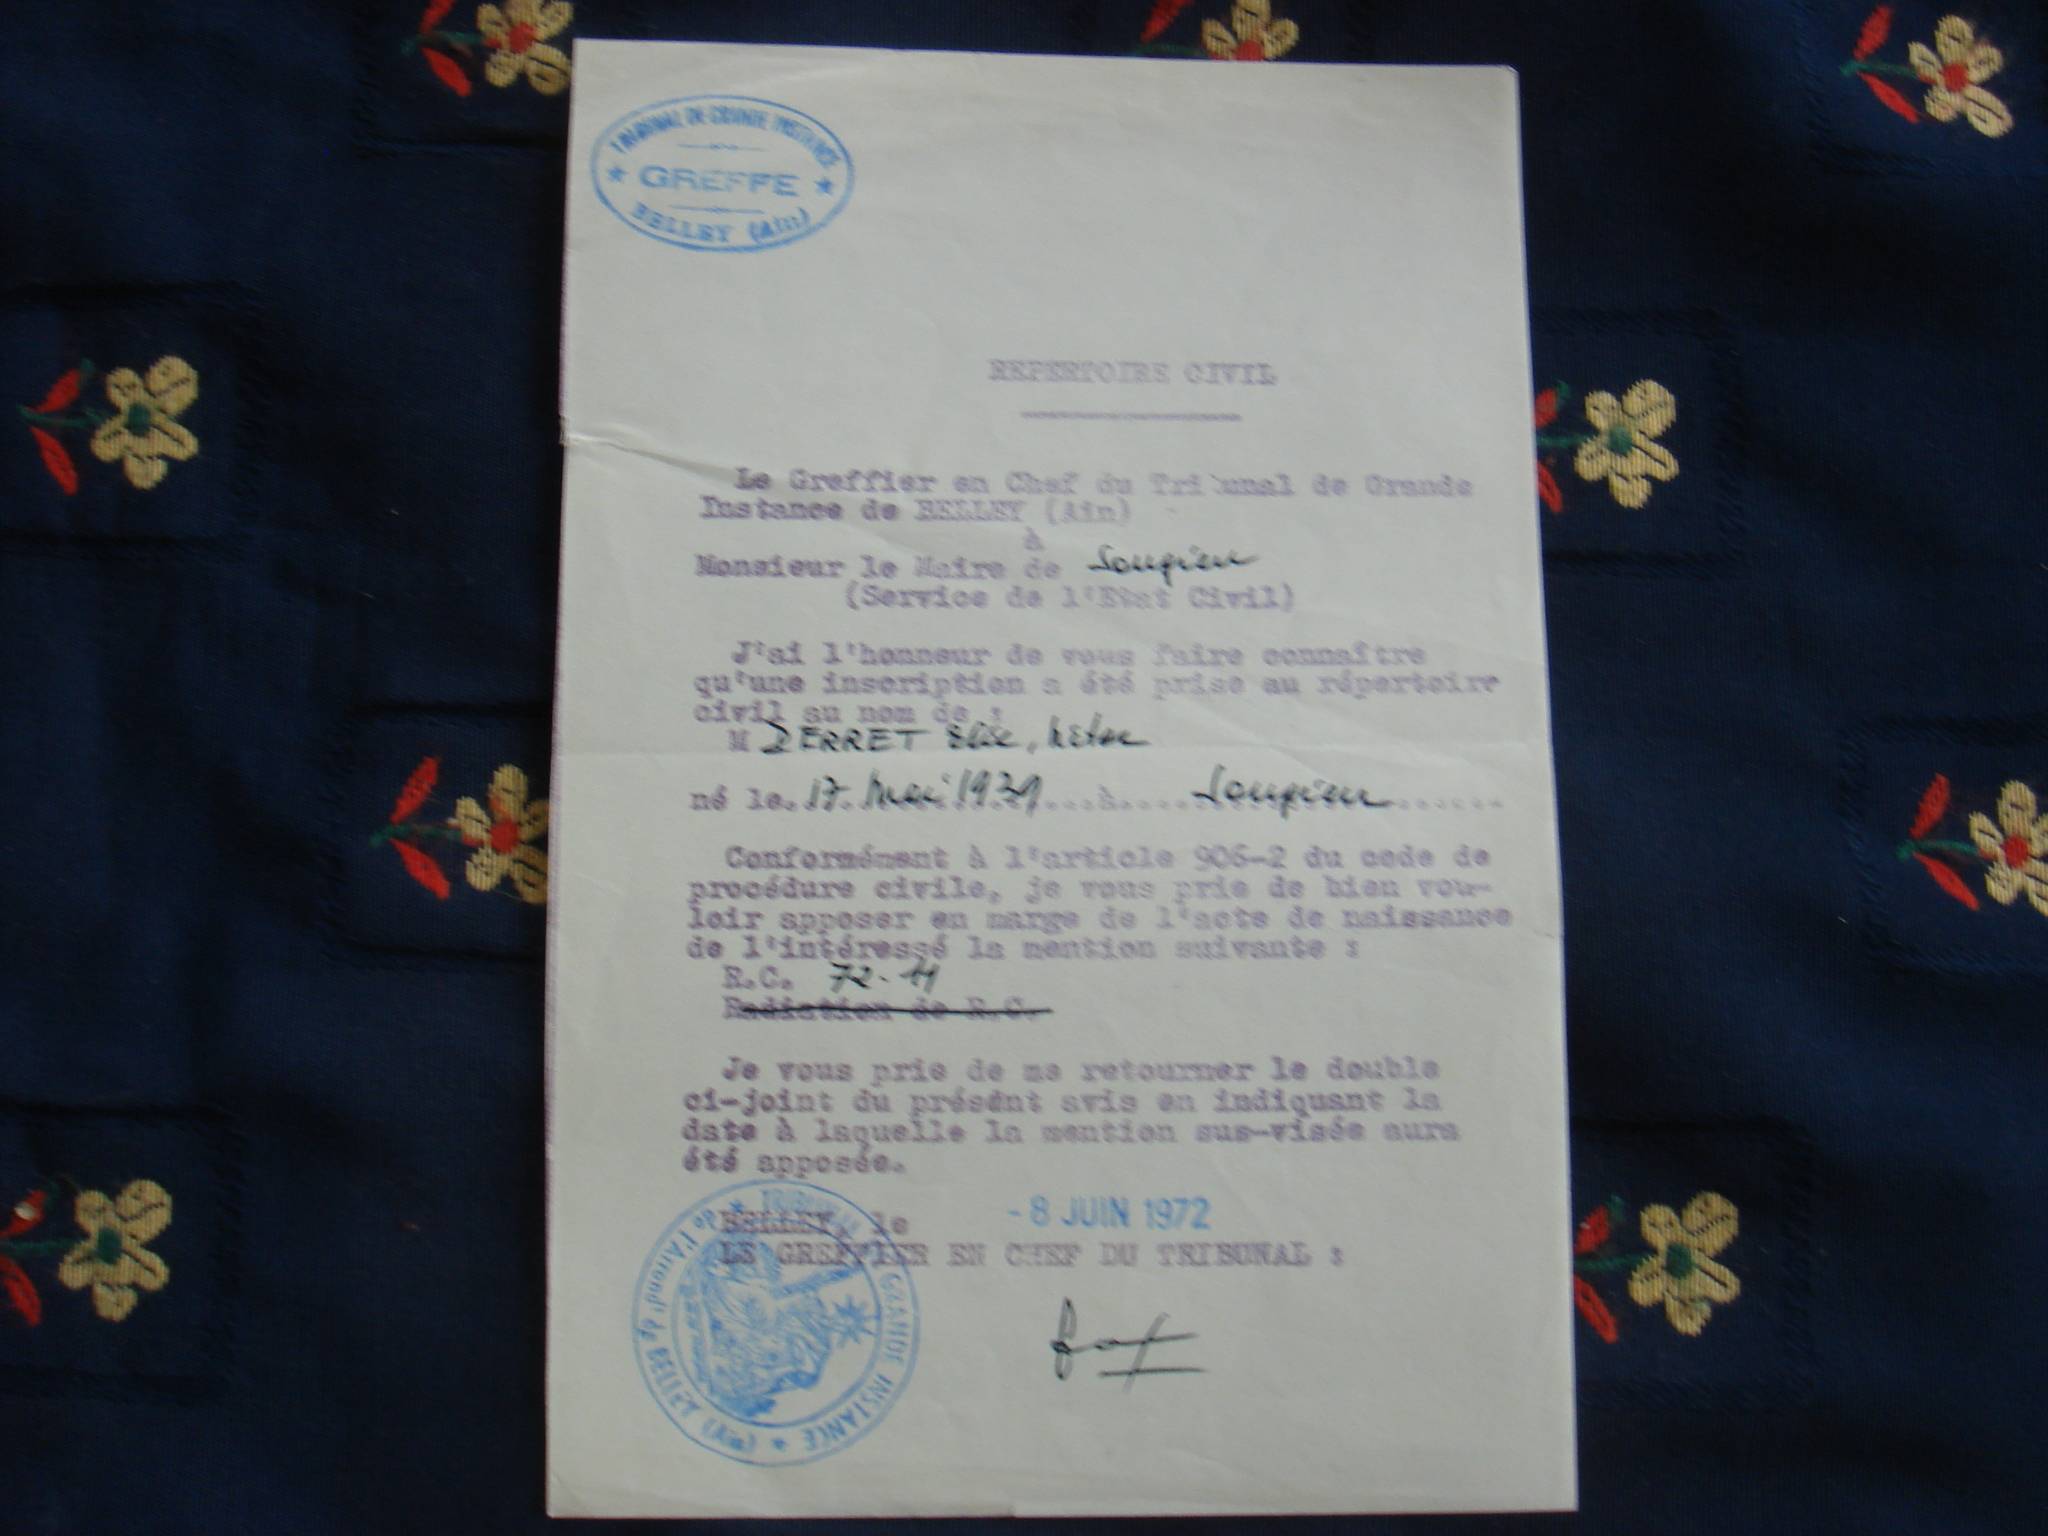 TRIBUNAL DE GRANDE INSTANCE
GREFFE
BELLEY (Ain)
REPERTOIRE CIVIL
Le Greffier en Chef du Tribunal de Grande
Instance de BELLEY (Ain)
à
Monsieur le Maire de Songieu
(Service de l'Etat Civil)
J'ai l'honneur de vous faire connaître
qu'une inscription a été prise au répertoire
civil au nom de :
M DERRET Elise,
né le. 17 mai 1939 ...à..... Songieu ......
Conformément à l'article 906-2 du code de
procédure civile, je vous prie de bien vou-
loir apposer en marge de l'acte de naissance
de l'intéressé la mention suivante :
R.C. 72-11
Radiation de R.C.
Je vous prie de me retourner le double
ci-joint du présént avis en indiquant la
date à laquelle la mention sus-visée aura
été apposée.
BELLEY, le - 8 JUIN 1972
LE GREFFIER EN CHEF DU TRIBUNAL :
TRIBUNAL GRANDE INSTANCE
de l'Arrond' de BELLEY (Ain)